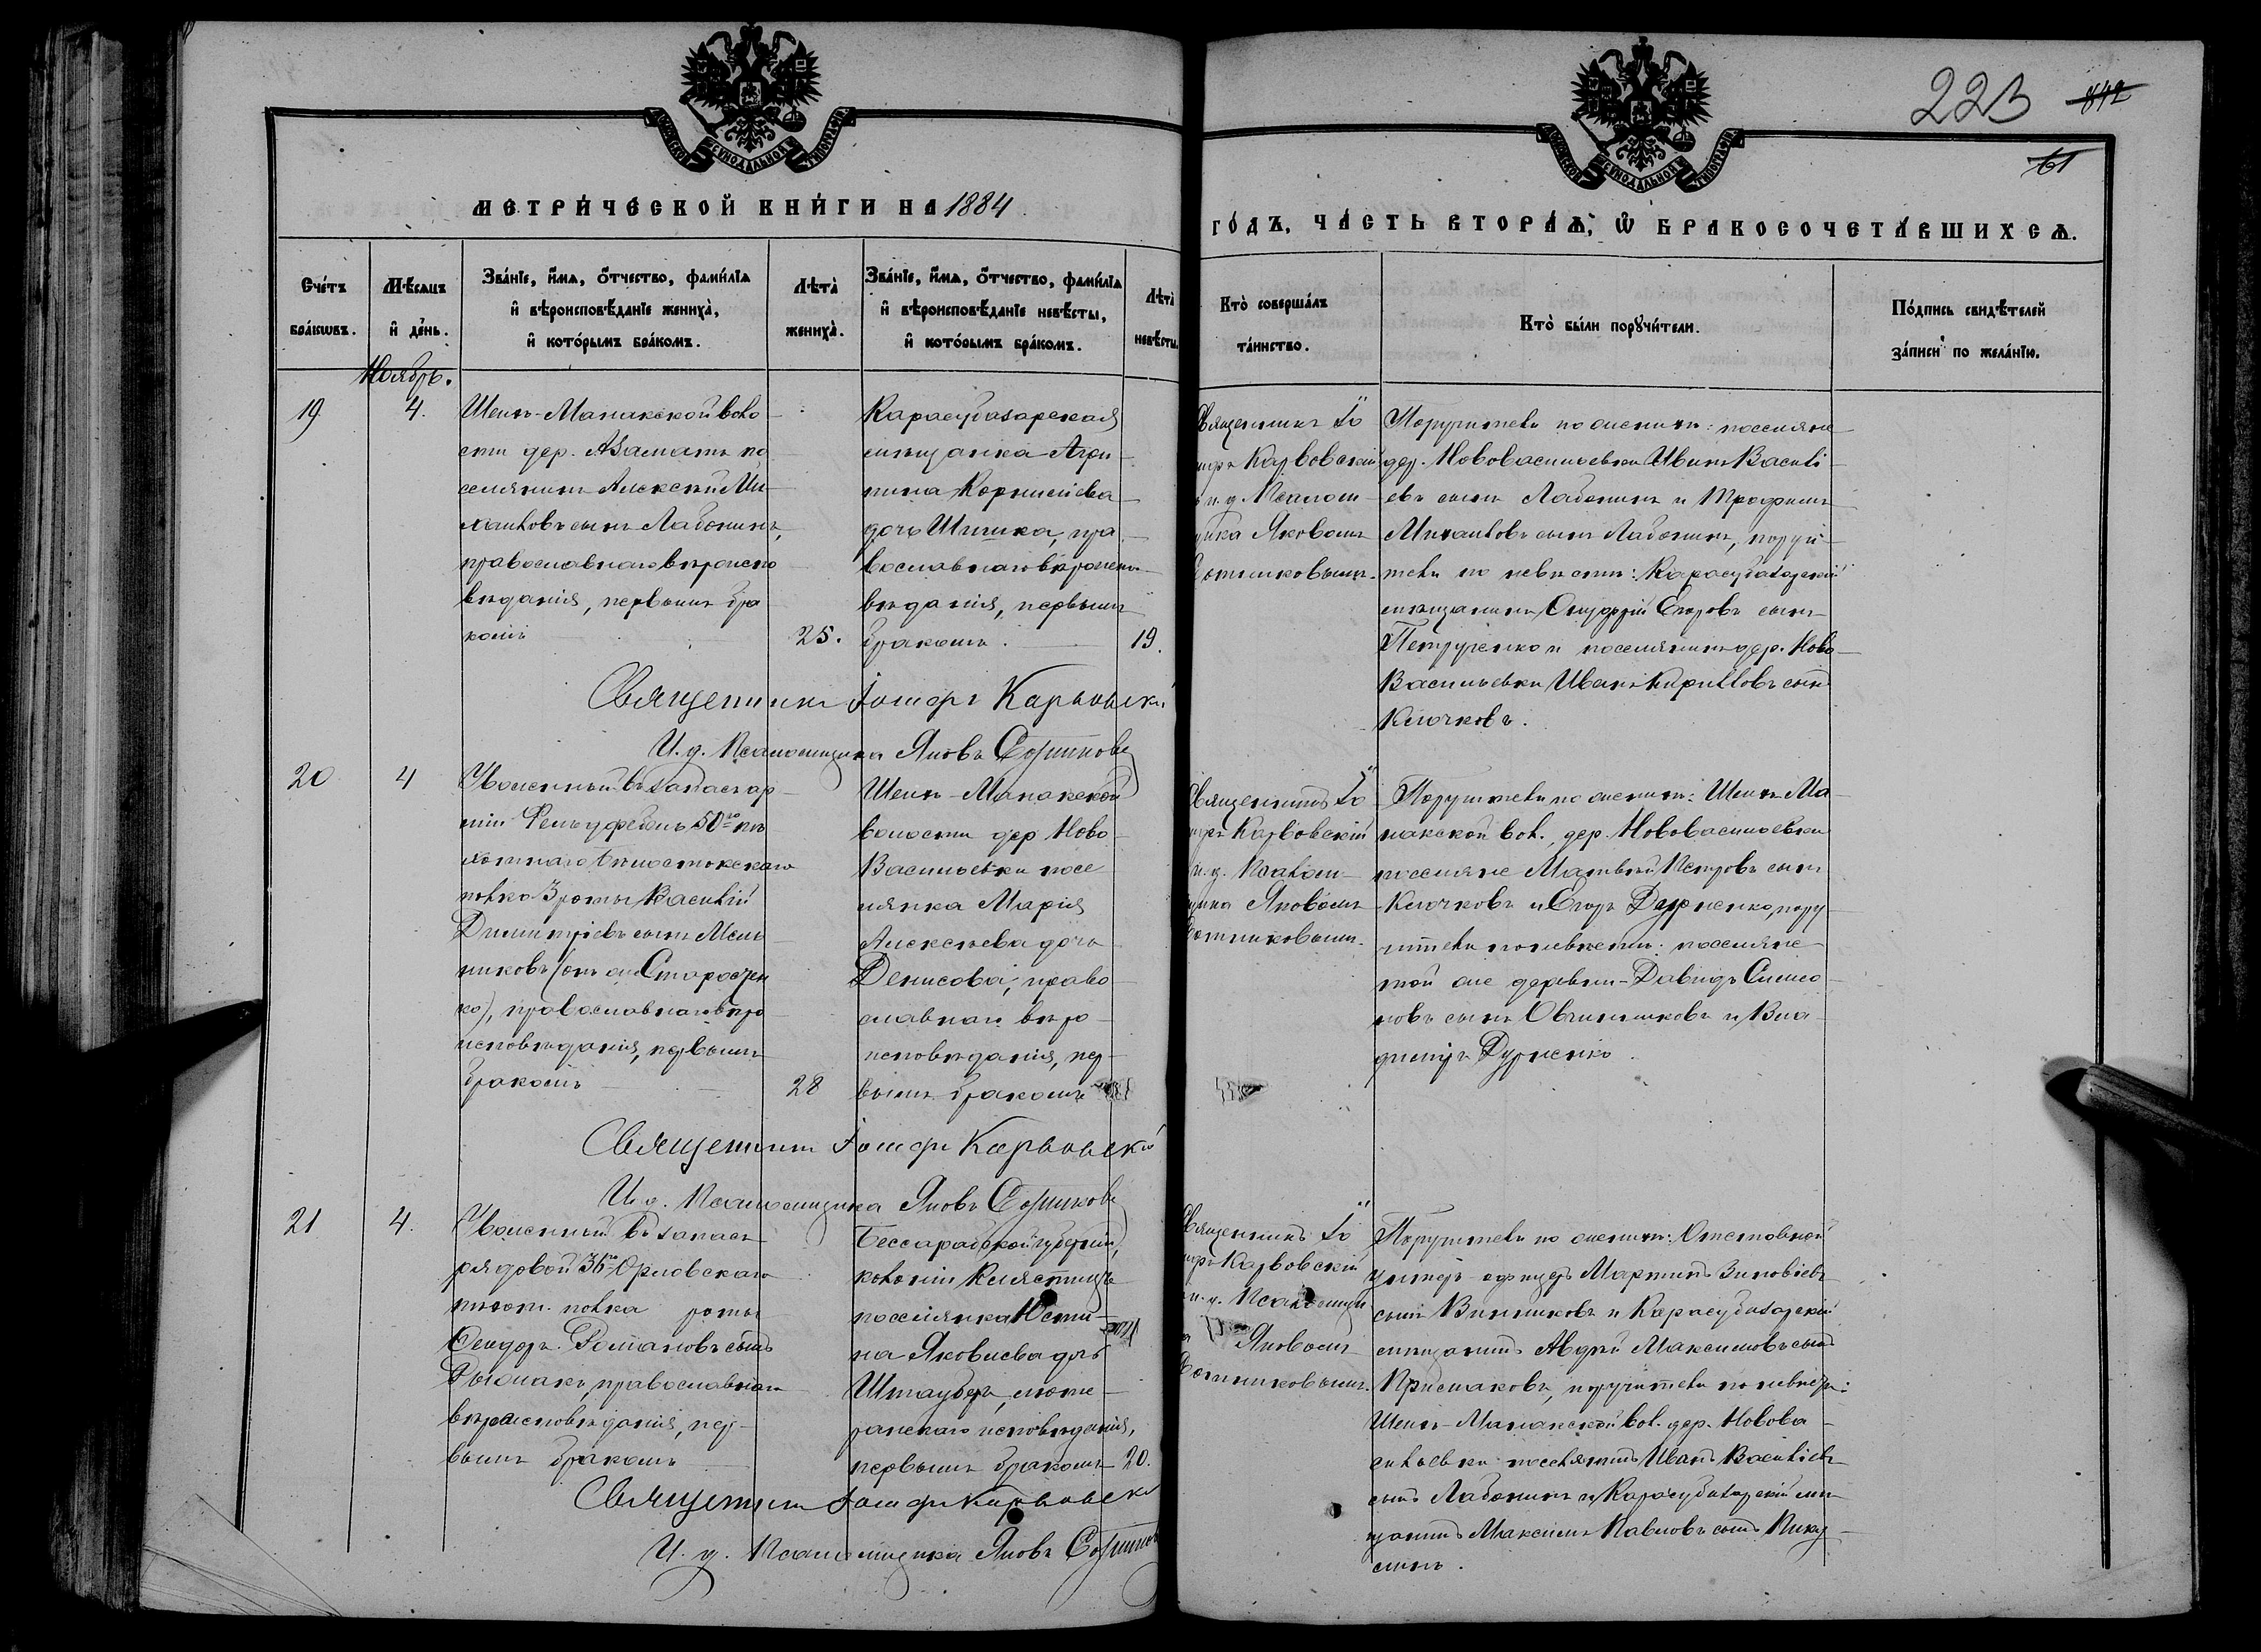 МЕТРИ́ЧЕСКОЙ КНИ́ГИ НА 1884
ГО́ДЪ, ЧА́СТЬ ВТОРА́Ѧ, Ѡ БРАКОСОЧЕТА́ВШИХСѦ.
223 842
61
Сче́тъ бра́кѡвъ.
Мѣ́сѧцъ и҆ де́нь.
Зва́нїе, и҆́мѧ, ѻ҆́тчество, фами́лїѧ и҆ вѣроисповѣ́данїе жениха̀, и҆ кото́рымъ бра́комъ.
Лѣта̀ жениха̀.
Зва́нїе, и҆́мѧ, ѻ҆́тчество, фами́лїѧ и҆ вѣроисповѣ́данїе невѣ́сты, и҆ кото́рымъ бра́комъ.
Лѣта̀ невѣ́сты
Кто̀ соверша́лъ та́инство.
Кто̀ бы́ли порꙋчи́тели.
По́дпись свидѣ́телей за́писи по жела́нїю.
Ноябрь.
19 4.
Шеихъ-Манакской воло
сти дер. Азаматъ по
селянинъ Алексѣй Ми
хаиловъ сынъ Лабонинъ,
православнаго вѣроиспо
вѣданія, первымъ бра
комъ 25.
Карасубазарская
мѣщанка Агри
пина Корнилiева
дочь Шишка, пра
вославнаго вѣроиспо
вѣданія, первымъ
бракомъ. 19.
Священникъ Іо
Карвовскій
и. д. Псалом
щика Яковомъ
Сотниковымъ.
Поручители по женихѣ: поселяне
дер. Нововасильевки Иванъ Василі
евъ сынъ Лабонинъ и Трофимъ
Михаиловъ сынъ Лабонинъ, поручи
тели по невѣстѣ: Карасубазарскій
мѣщанинъ Егоровъ сынъ
Петрученко и поселянинъ дер. Ново
Васильевки Иванъ Кирилловъ сынъ
Клочковъ.
Священникъ Іосифъ Карвовскій
И. д. Псаломщика Яковъ Сотниковъ
20 4
Уволенный въ запасъ ар
міи Фельдфебель 50го пѣ
хотнаго Бѣлостокскаго
полка 3 роты Василій
Димитріевъ сынъ Мель
никовъ (онъ же Старосчен
ко), православнаго вѣро
исповѣданія, первымъ
бракомъ 28
Шеихъ-Манакской
волости дер Ново
Васильевки посе
лянка Марія
Алексѣева дочь
Денисова, право
славнаго вѣро
исповѣданія, пер
вымъ бракомъ
Священникъ Іо
Карвовскій
и. д. Псалом
щика Яковомъ
Сотниковымъ.
Поручители по женихѣ: Шеихъ Ма
накской вол. дер. Нововасильевки
поселяне Матвѣй Петровъ сынъ
Клочковъ и Егоръ Дурненко, пору
чители по невѣстѣ: поселяне
той же деревни Давидъ Симео
новъ сынъ Овчинниковъ и Вла
диміръ Дурненко.
Священникъ Іосифъ Карвовскій
И. д. Псаломщика Яковъ Сотниковъ
21 4.
Уволенный въ запасъ
рядовой 36го Орловскаго
пѣхот. полка роты
Ѳеодоръ Романовъ сынъ
православнаго
вѣроисповѣданія, пер
вымъ бракомъ
Бессарабской губерніи,
колоніи Клястицъ
поселянка Юсти
на Яковлева дочь
Штауберъ, люте
ранскаго исповѣданія,
первымъ бракомъ 20.
Священникъ Іо
Карвовскій
и. д. Псаломщи
Яковомъ
Сотниковымъ.
Поручители по женихѣ: Отставной
унтеръ-офицеръ Мартинъ Зиновіевъ
сынъ Винниковъ и Карасубазарскій
мѣщанинъ Авдѣй Максимовъ сынъ
Присмаковъ, поручители по невѣстѣ:
Шеихъ-Манакской вол. дер. Новова
сильевки поселянинъ Иванъ Василіевъ
сынъ Лабонинъ и Карасубазарскій мѣ
щанинъ Максимъ Павловъ сынъ
Священникъ Іосифъ Карвовскій
И. д. Псаломщика Яковъ Сотниковъ